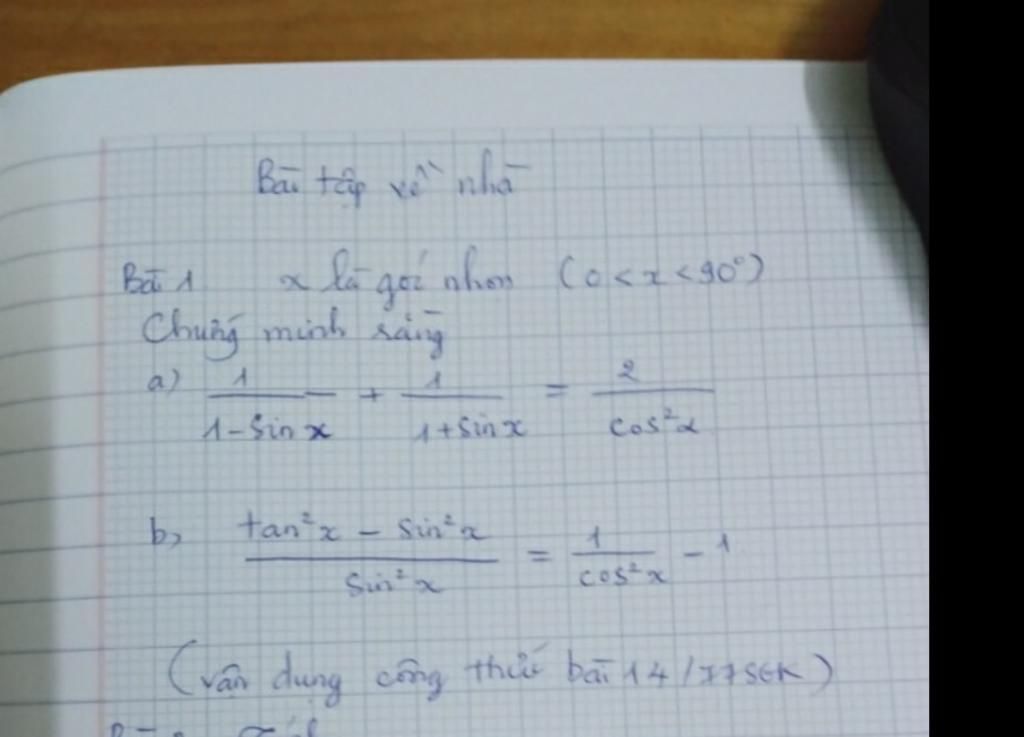 Bài tập về nhà
Bài 1 x là góc nhọn (0 < x < 90°)
Chứng minh rằng
a) 1/(1 - sin x) + 1/(1 + sin x) = 2/cos²x
b, (tan²x - sin²x)/sin²x = 1/cos²x - 1
(vận dụng công thức bài 14/77SGK)